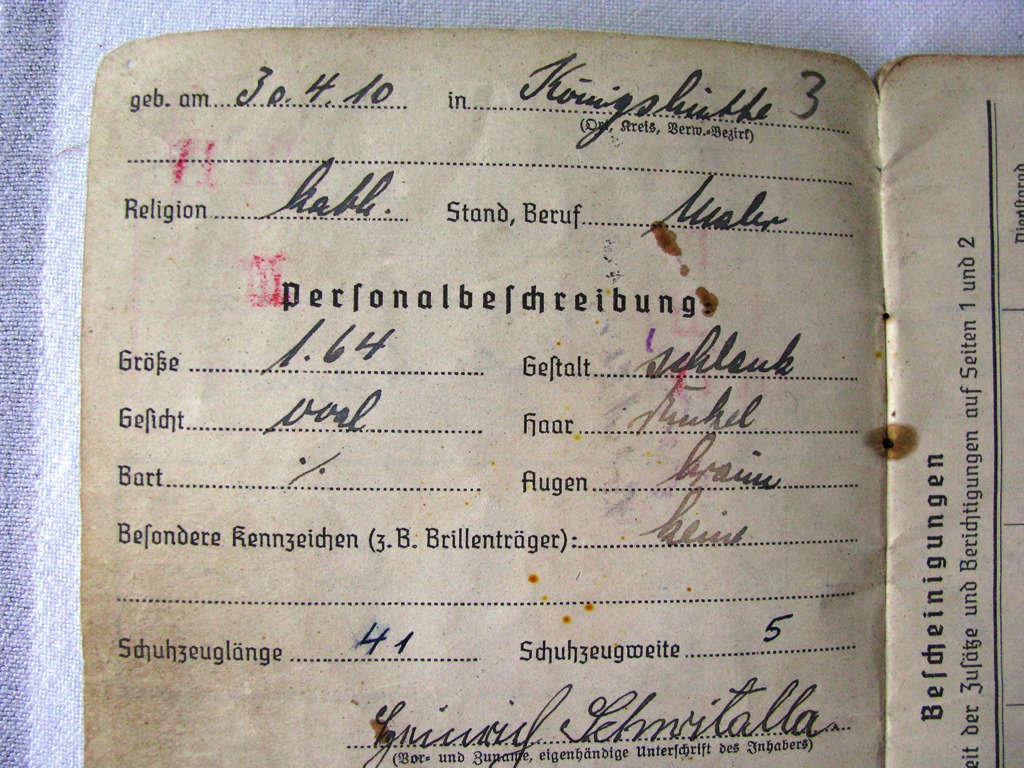 geb. am 30.4.10 in Königshütte 3
(Ort, Kreis, Verw.-Bezirk)
Religion kath. Stand, Beruf Maler
Personalbeschreibung
Größe 1.64 Gestalt schlank
Gesicht oval Haar dunkel
Bart ·/. Augen braun
Besondere Kennzeichen (z.B. Brillenträger): keine
Schuhzeuglänge 41 Schuhzeugweite 5
Heinrich Schwitalla
(Vor- und Zuname, eigenhändige Unterschrift des Inhabers)
Bescheinigungen
der Zusätze und Berichtigungen auf Seiten 1 und 2